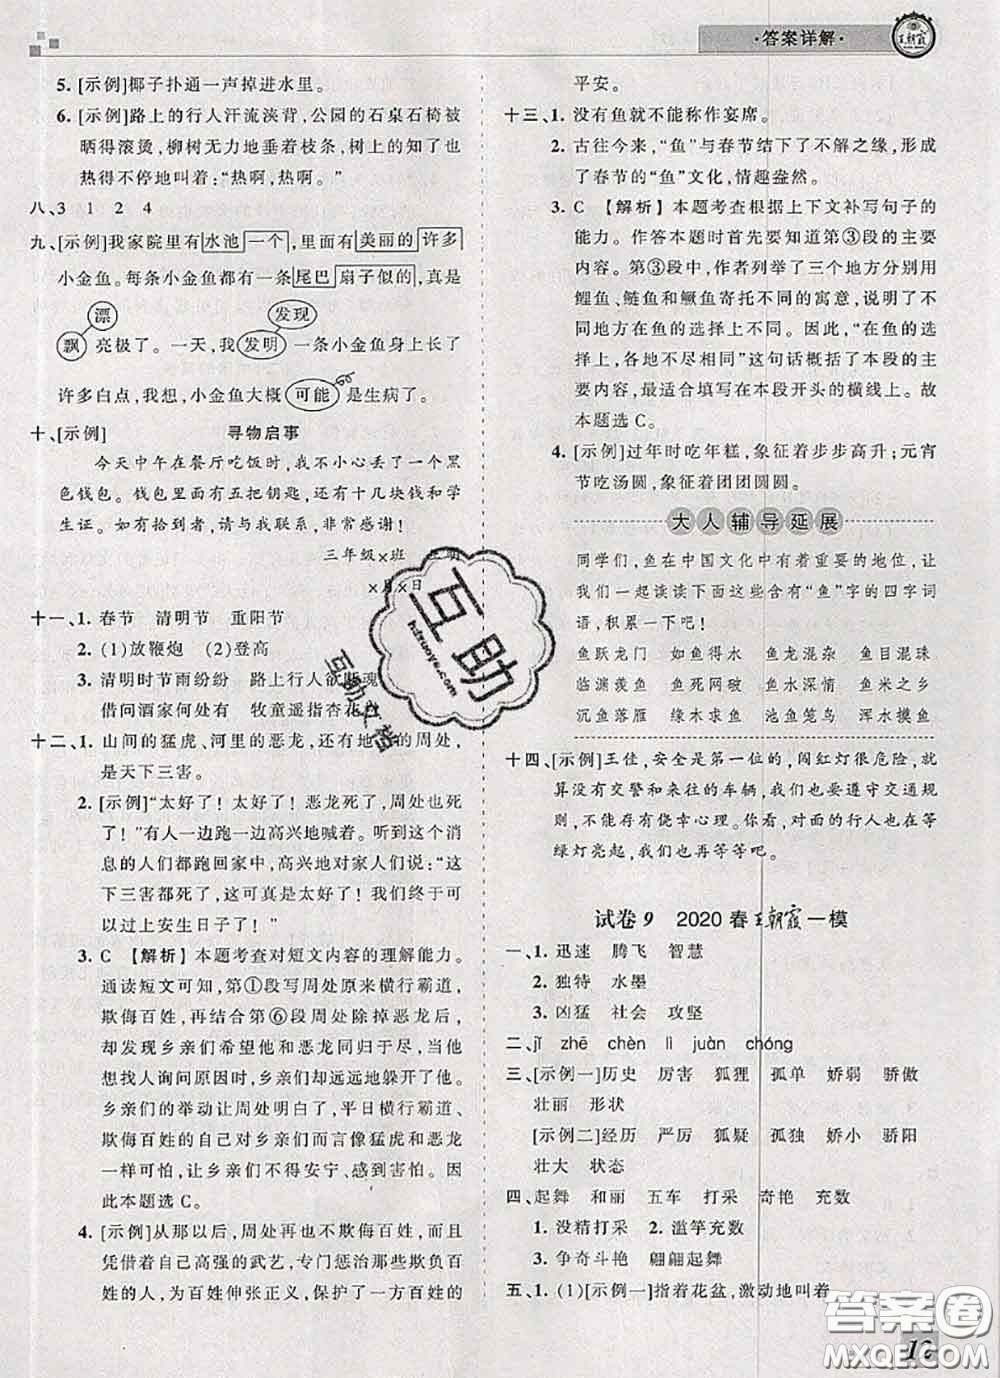 ·答案详解·
王朝霞
5. [示例]椰子扑通一声掉进水里。
6. [示例]路上的行人汗流浃背,公园的石桌石椅被
晒得滚烫,柳树无力地垂着枝条,树上的知了也
热得不停地叫着:“热啊,热啊。”
八、3 1 2 4
九、[示例]我家院里有水池一个,里面有美丽的许多
小金鱼。每条小金鱼都有一条尾巴扇子似的,真是
漂 发现
飘亮极了。一天,我发明一条小金鱼身上长了
许多白点,我想,小金鱼大概可能是生病了。
十、[示例] 寻物启事
今天中午在餐厅吃饭时,我不小心丢了一个黑
色钱包。钱包里面有五把钥匙,还有十几块钱和学
生证。如有拾到者,请与我联系,非常感谢!
三年级×班 明
×月×日
十一、1. 春节 清明节 重阳节
2. (1)放鞭炮 (2)登高
3. 清明时节雨纷纷 路上行人欲断魂
借问酒家何处有 牧童遥指杏花村
十二、1. 山间的猛虎、河里的恶龙,还有地上的周处,
是天下三害。
2. [示例]“太好了!太好了!恶龙死了,周处也死
了!”有人一边跑一边高兴地喊着。听到这个消
息的人们都跑回家中,高兴地对家人们说:“这
下三害都死了,这可真是太好啦!我们终于可
以过上安生日子了!”
3. C 【解析】本题考查对短文内容的理解能力。
通读短文可知,第①段写周处原来横行霸道,
欺侮百姓,后结合第⑥段周处除掉恶龙后,
却发现乡亲们希望他和恶龙同归于尽,当他
询问原因时,人们远远地躲开了他可以看出,
乡亲们的举动让周处知道,平日横行霸道、
欺侮百姓的自己对乡亲们而言像猛虎和恶龙
一样可怕,让乡亲们不得安宁、感到害怕。因
此本题选C。
4. [示例]从那以后,周处再也不欺侮百姓,而且
凭借着自己高强的武艺,专门惩治那些欺负百
姓的人,为百姓伸张正义,保护了一方百姓的
平安。
十三、1. 没有鱼就不能称作宴席。
2. 古往今来,“鱼”与春节结下了不解之缘,形成
了春节的“鱼”文化,情趣盎然。
3. C 【解析】本题考查根据上下文补写句子的
能力。作答本题时首先要知道第③段的主要
内容。第③段中,作者列举了三个地方分别用
鲤鱼、鲢鱼和鳜鱼寄托不同的寓意,说明了不
同地方在鱼的选择上不同。因此,“在鱼的选
择上,各地不尽相同”这句话概括了本段的主
要内容,最适合填写在本段开头的横线上。故
本题选C。
4. [示例]过年时吃年糕,象征着步步高升;元宵
节吃汤圆,象征着团团圆圆。
大人辅导延展
同学们,鱼在中国文化中有着重要的地位,让
我们一起读读下面这些含有“鱼”字的四字词
语,积累一下吧!
鱼跃龙门 如鱼得水 鱼龙混杂 鱼目混珠
临渊羡鱼 鱼死网破 鱼水深情 鱼米之乡
沉鱼落雁 缘木求鱼 池鱼笼鸟 浑水摸鱼
十四、[示例]王佳,安全是第一位的,闯红灯很危险,就
算没有交警和来往的车辆,我们也要遵守交通规
则,不能存有侥幸心理。你看,对面的行人也在等
绿灯亮起,我们也再等等吧。
试卷9 2020春王朝霞一模
一、1. 迅速 腾飞 智慧
2. 独特 水墨
3. 凶猛 社会 攻坚
二、jǐ zhē chèn lì juàn chóng
三、[示例一]历史 厉害 狐狸 孤单 娇弱 骄傲
壮丽 形状
[示例二]经历 严厉 狐疑 孤独 娇小 骄阳
壮大 状态
四、起舞 和丽 五车 打采 奇艳 充数
1. 没精打采 2. 滥竽充数
3. 争奇斗艳 翩翩起舞
五、1. (1)[示例一]指着花盆,激动地叫着
12
互助
hdzuoye.com
互助文档
答案圈
MXQE.COM